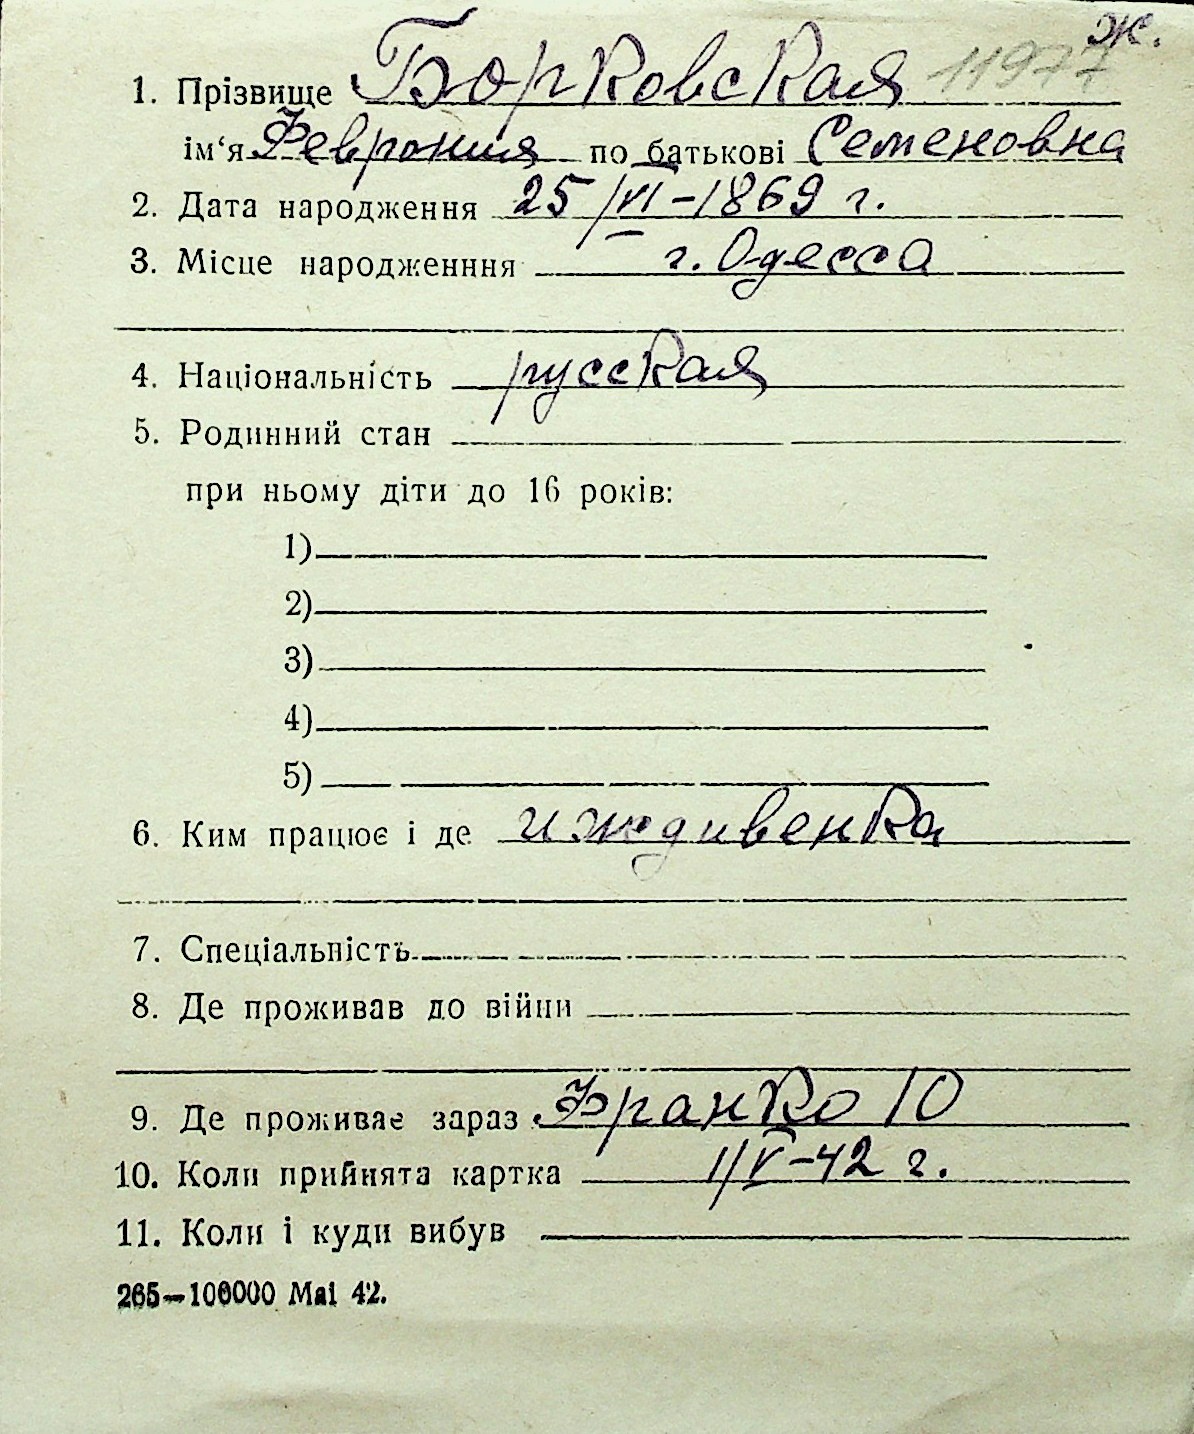 ж.
1. Прізвище Борковская 11977
ім‘я Феврония по батькові Семеновна
2. Дата народження 25/VI-1869 г.
3. Місце народженння г. Одесса
4. Національність русская
5. Родинний стан
при ньому діти до 16 років:
1)
2)
3)
4)
5)
6. Ким працює і де иждивенка
7. Спеціальність
8. Де проживав до війни
9. Де проживає зараз Франко 10
10. Коли прийнята картка 1/V-42 г.
11. Коли і куди вибув
265—100000 Mai 42.